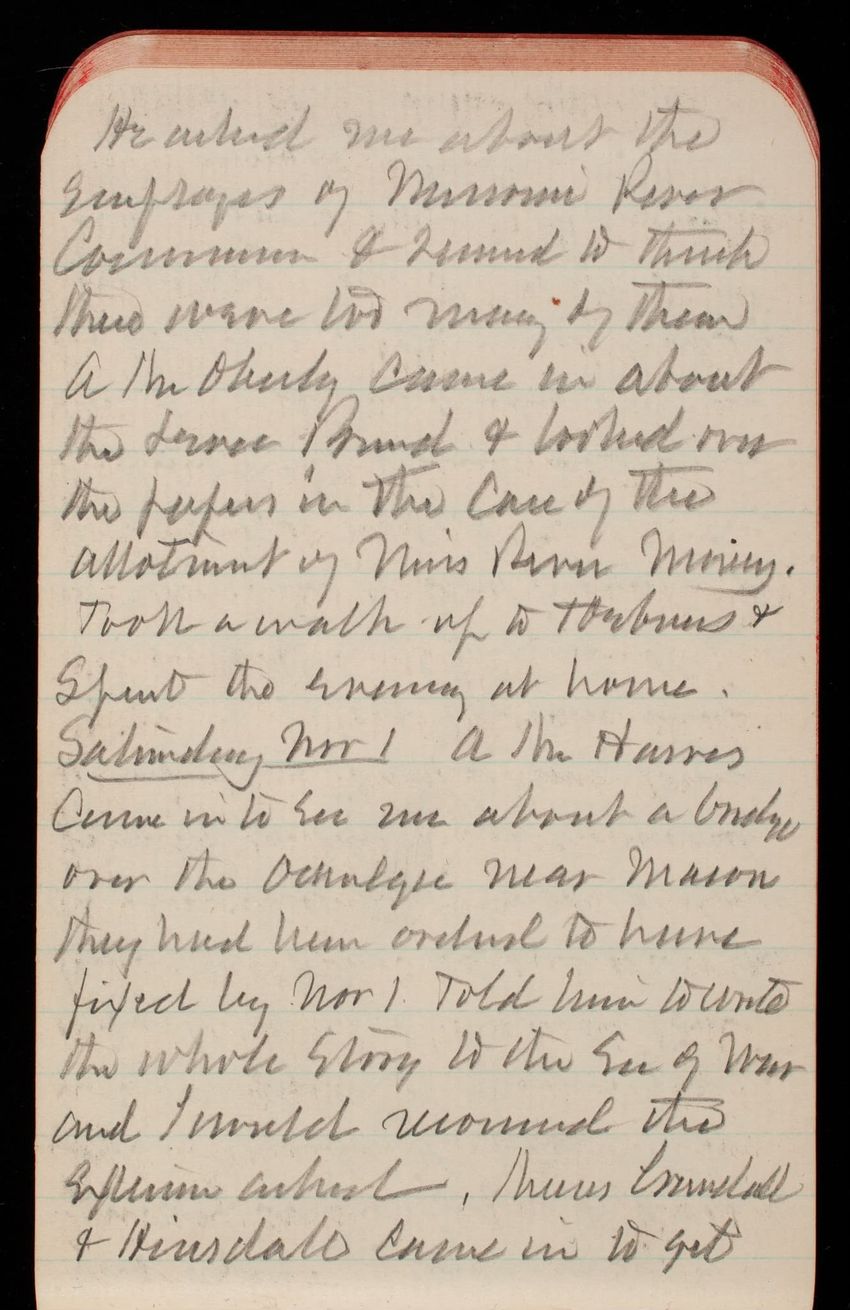 He asked me about the
Employes of Missouri River
Commission & seemed to think
there were too many of them
A Mr Oberly came in about
the Board & looked over
the papers in the Case of the
allotment of Miss River Money.
Took a walk up to Thoburns &
Spent the evening at home.
Saturday Nov 1 A Mr Harris
Came in to see me about a bridge
over the Ocmulgee near Macon
they had been ordered to have
fixed by Nov 1. Told him to write
the whole Story to the Sec of War
and I would recomend the
Extension asked. Messrs Crandall
& Hinsdale came in to get